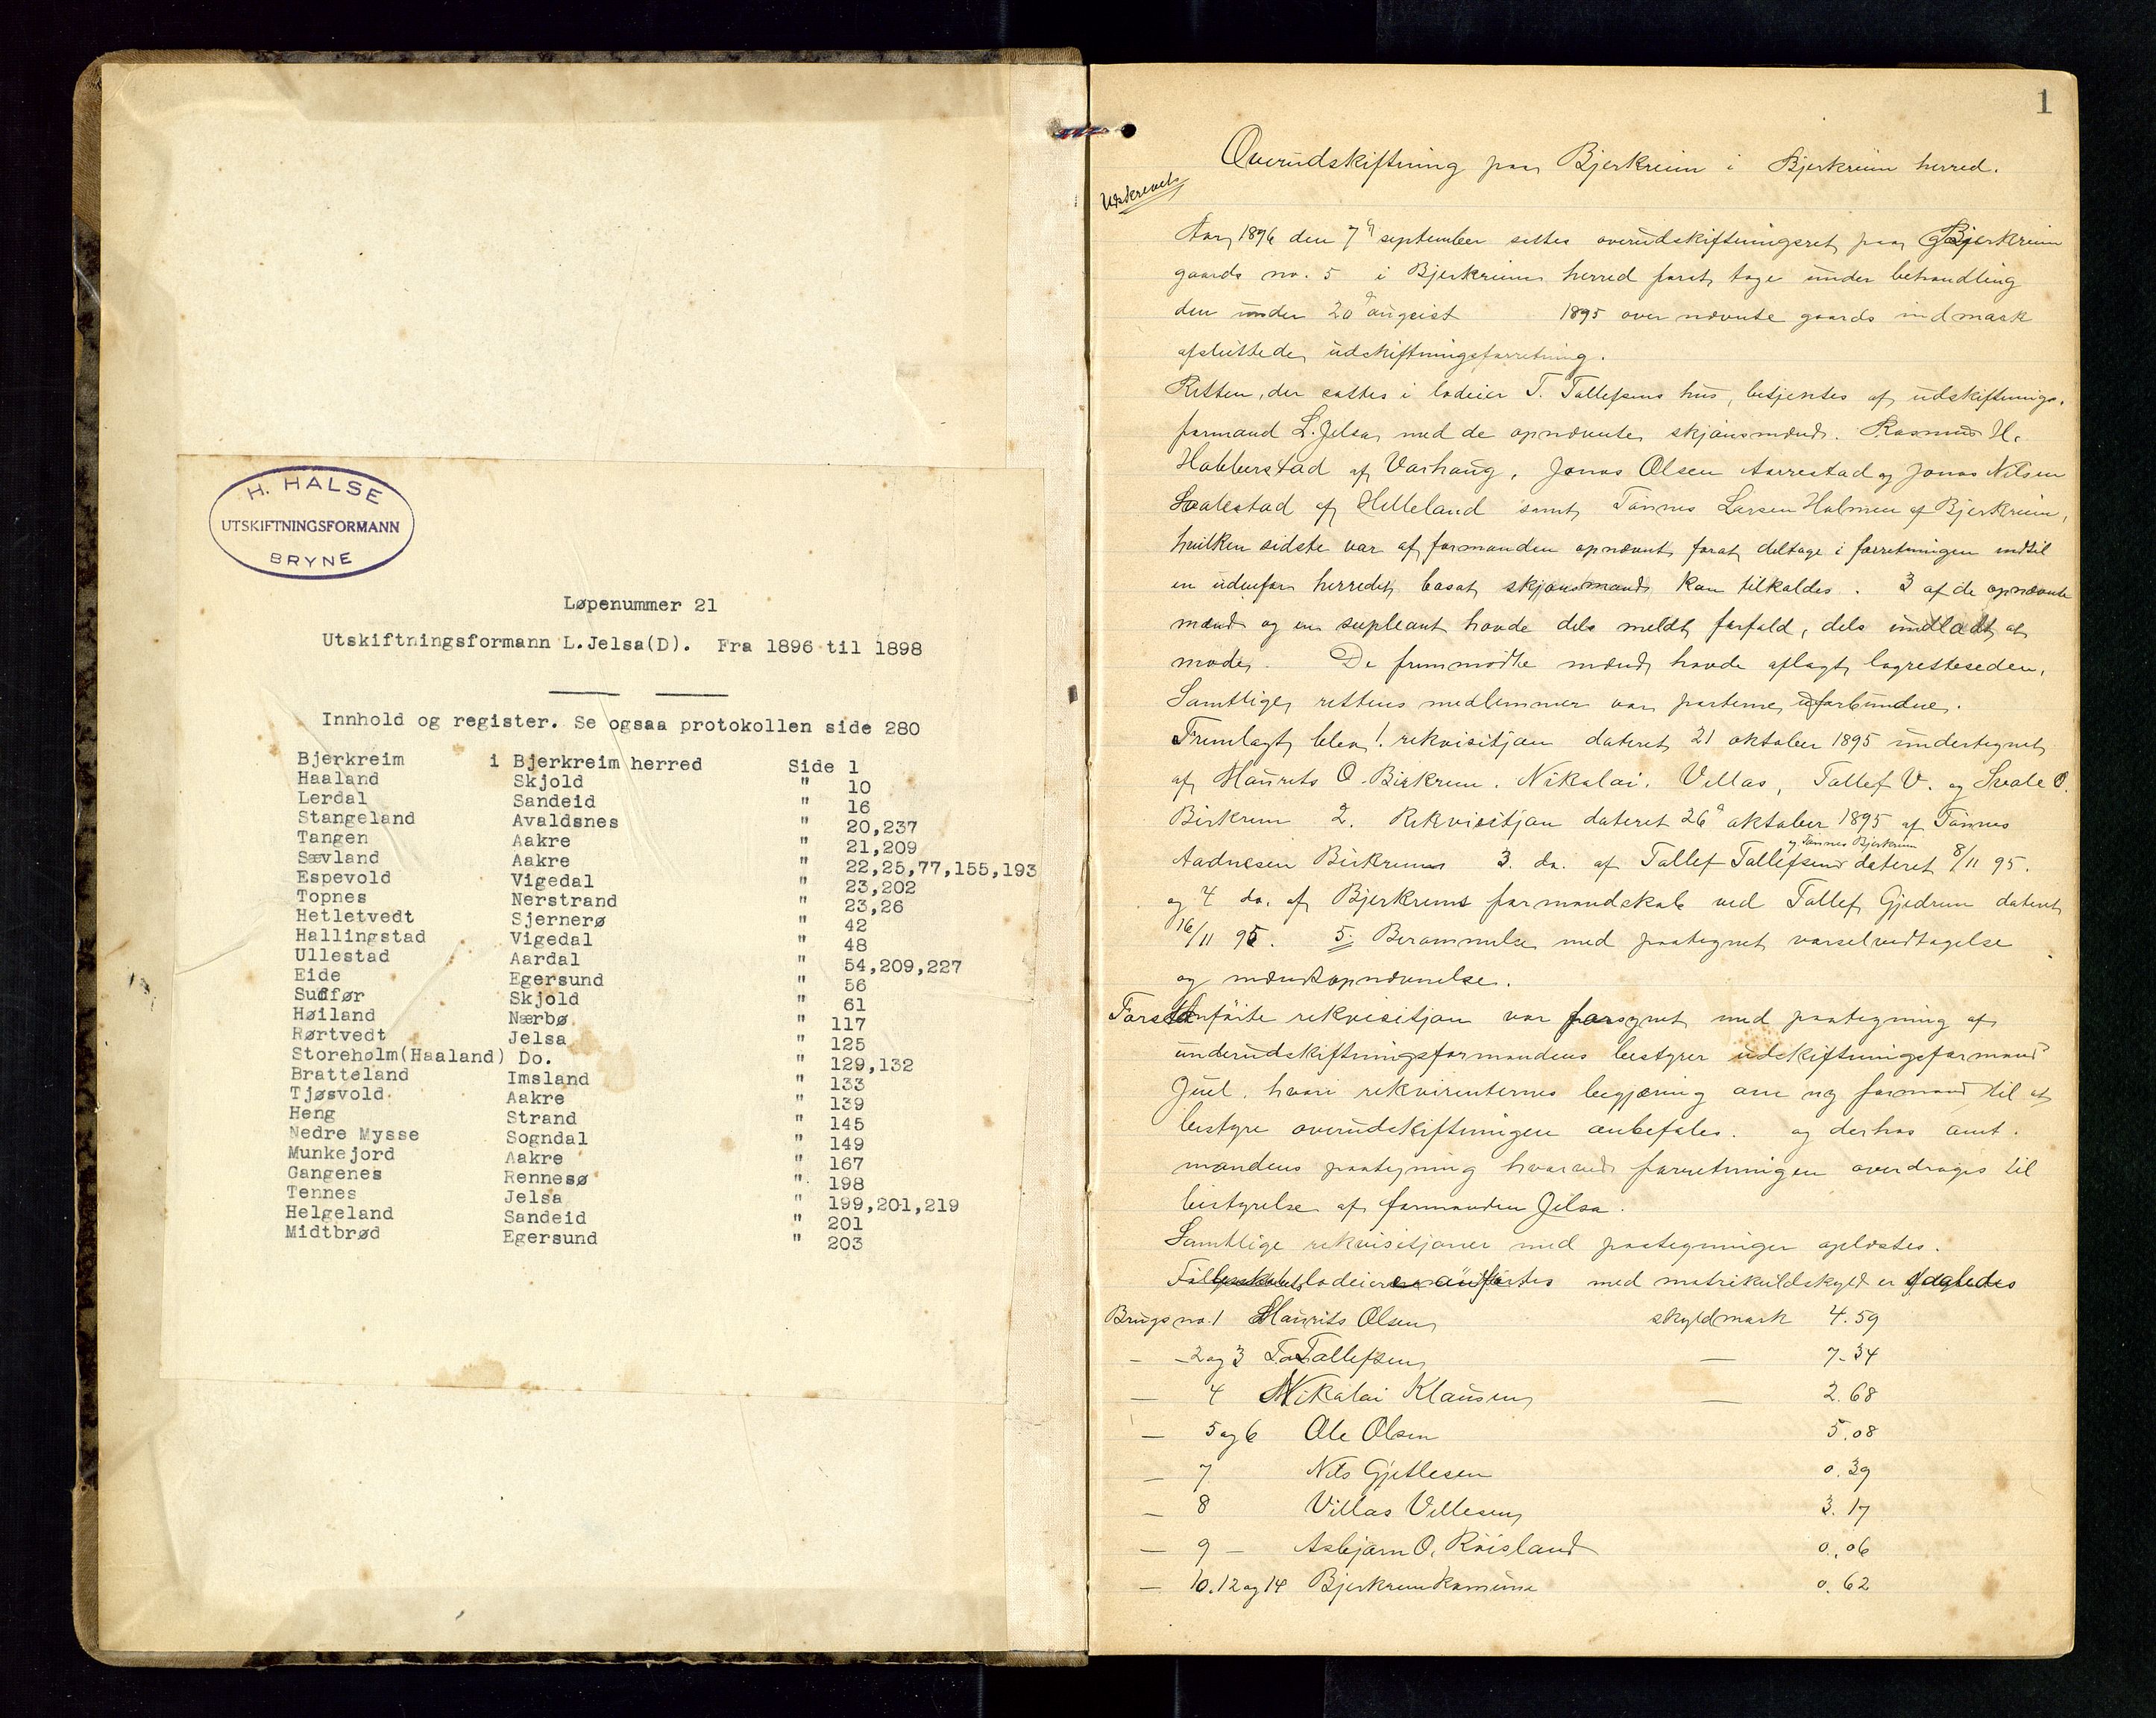 H. HALSE
UTSKIFTNINGSFORMANN
BRYNE
Løpenummer 21
Utskiftningsformann L.Jelsa(D). Fra 1896 til 1898
Innhold og register. Se ogsaa protokollen side 280
Bjerkreim i Bjerkreim herred Side 1
Haaland Skjold " 10
Lerdal Sandeid " 16
Stangeland Avaldsnes " 20,237
Tangen Aakre " 21,209
Sævland Aakre " 22,25,77,155,193
Espevold Vigedal " 23,202
Topnes Nerstrand " 23,26
Hetletvedt Sjernerø " 42
Hallingstad Vigedal " 48
Ullestad Aardal " 54,209,227
Eide Egersund " 56
Sudfør Skjold " 61
Høiland Nærbø " 117
Rørtvedt Jelsa " 125
Storeholm(Haaland) Do. " 129,132
Bratteland Imsland " 133
Tjøsvold Aakre " 139
Heng Strand " 145
Nedre Mysse Sogndal " 149
Munkejord Aakre " 167
Gangenes Rennesø " 198
Tennes Jelsa " 199,201,219
Helgeland Sandeid " 201
Midtbrød Egersund " 203
1
Overudskiftning paa Bjerkreim i Bjerkreim herred.
Udskrevet
Aar 1896 den 7de september sattes overudskiftningsret paa Bjerkreim
gaards no. 5 i Bjerkreim herred forat tage under behandling
den under 20de august 1895 over nævnte gaards indmark
afsluttede udskiftningsforretning.
Retten, der sattes i lodeier T. Tollefsens hus, betjentes af udskiftnings-
formand L. Jelsa med de opnævnte skjønsmænd. Rasmus H.
Hobberstad af Varhaug, Jonas Olsen Aarrestad og Jonas Nilsen
Svalestad af Helleland samt Tønnes Larsen Holmen af Bjerkreim,
hvilken sidste var af formanden opnævnt forat deltage i forretningen indtil
en udenfor herredet bosat skjønsmand kan tilkaldes. 3 af de opnævnte
mænd og en supleant havde dels meldt forfald, dels undladt at
møde. De fremmødte mænd havde aflagt lagretteseden.
Samtlige rettens medlemmer var parterne uforbundne.
Fremlagt blev 1. rekvisitjon dateret 21 oktober 1895 undertegnet
af Maurits O. Birkrem. Nikolai. Villas, Tollef V. og Svale O.
Birkrem 2. Rekvisitjon dateret 26de oktober 1895 af Tønnes
og Tønnes Bjerkreim
Aadnesen Birkrem 3. do. af Tollef Tollefsen dateret 8/11 95.
og 4 do. af Bjerkrems formandskab ved Tollef Gjedrem dateret
16/11 95. 5. Berammelse med paategnet varselvedtagelse
og mændsopnævnelse.
Førstanførte rekvisitjon var forsynet med paategning af
underudskiftningsformandens bestyrer udskiftningsformand
Juel, hvori rekvirenternes begjæring om ny formand til at
bestyre overudskiftningen anbefales. og derhos amt-
mandens paategning hvorved forretningen overdrages til
bestyrelse af formanden Jelsa.
Samtlige rekvisitjoner med paategninger oplæstes.
lodeiere anførtes med matrikulskyld er
Brugs no. 1 Maurits Olsen skyldmark 4.59
— - 2 og 3 T. Tollefsen — 7-34
— 4 Nikolai Klausen — 2.68
— 5 og 6 Ole Olsen 5.08
— 7 Nils Gjetlesen 0.39
— 8 Villas Villesen 3.17
— 9 - Asbjørn O. Røisland 0.06
— 10. 12 og 14 Bjerkrem komune 0.62